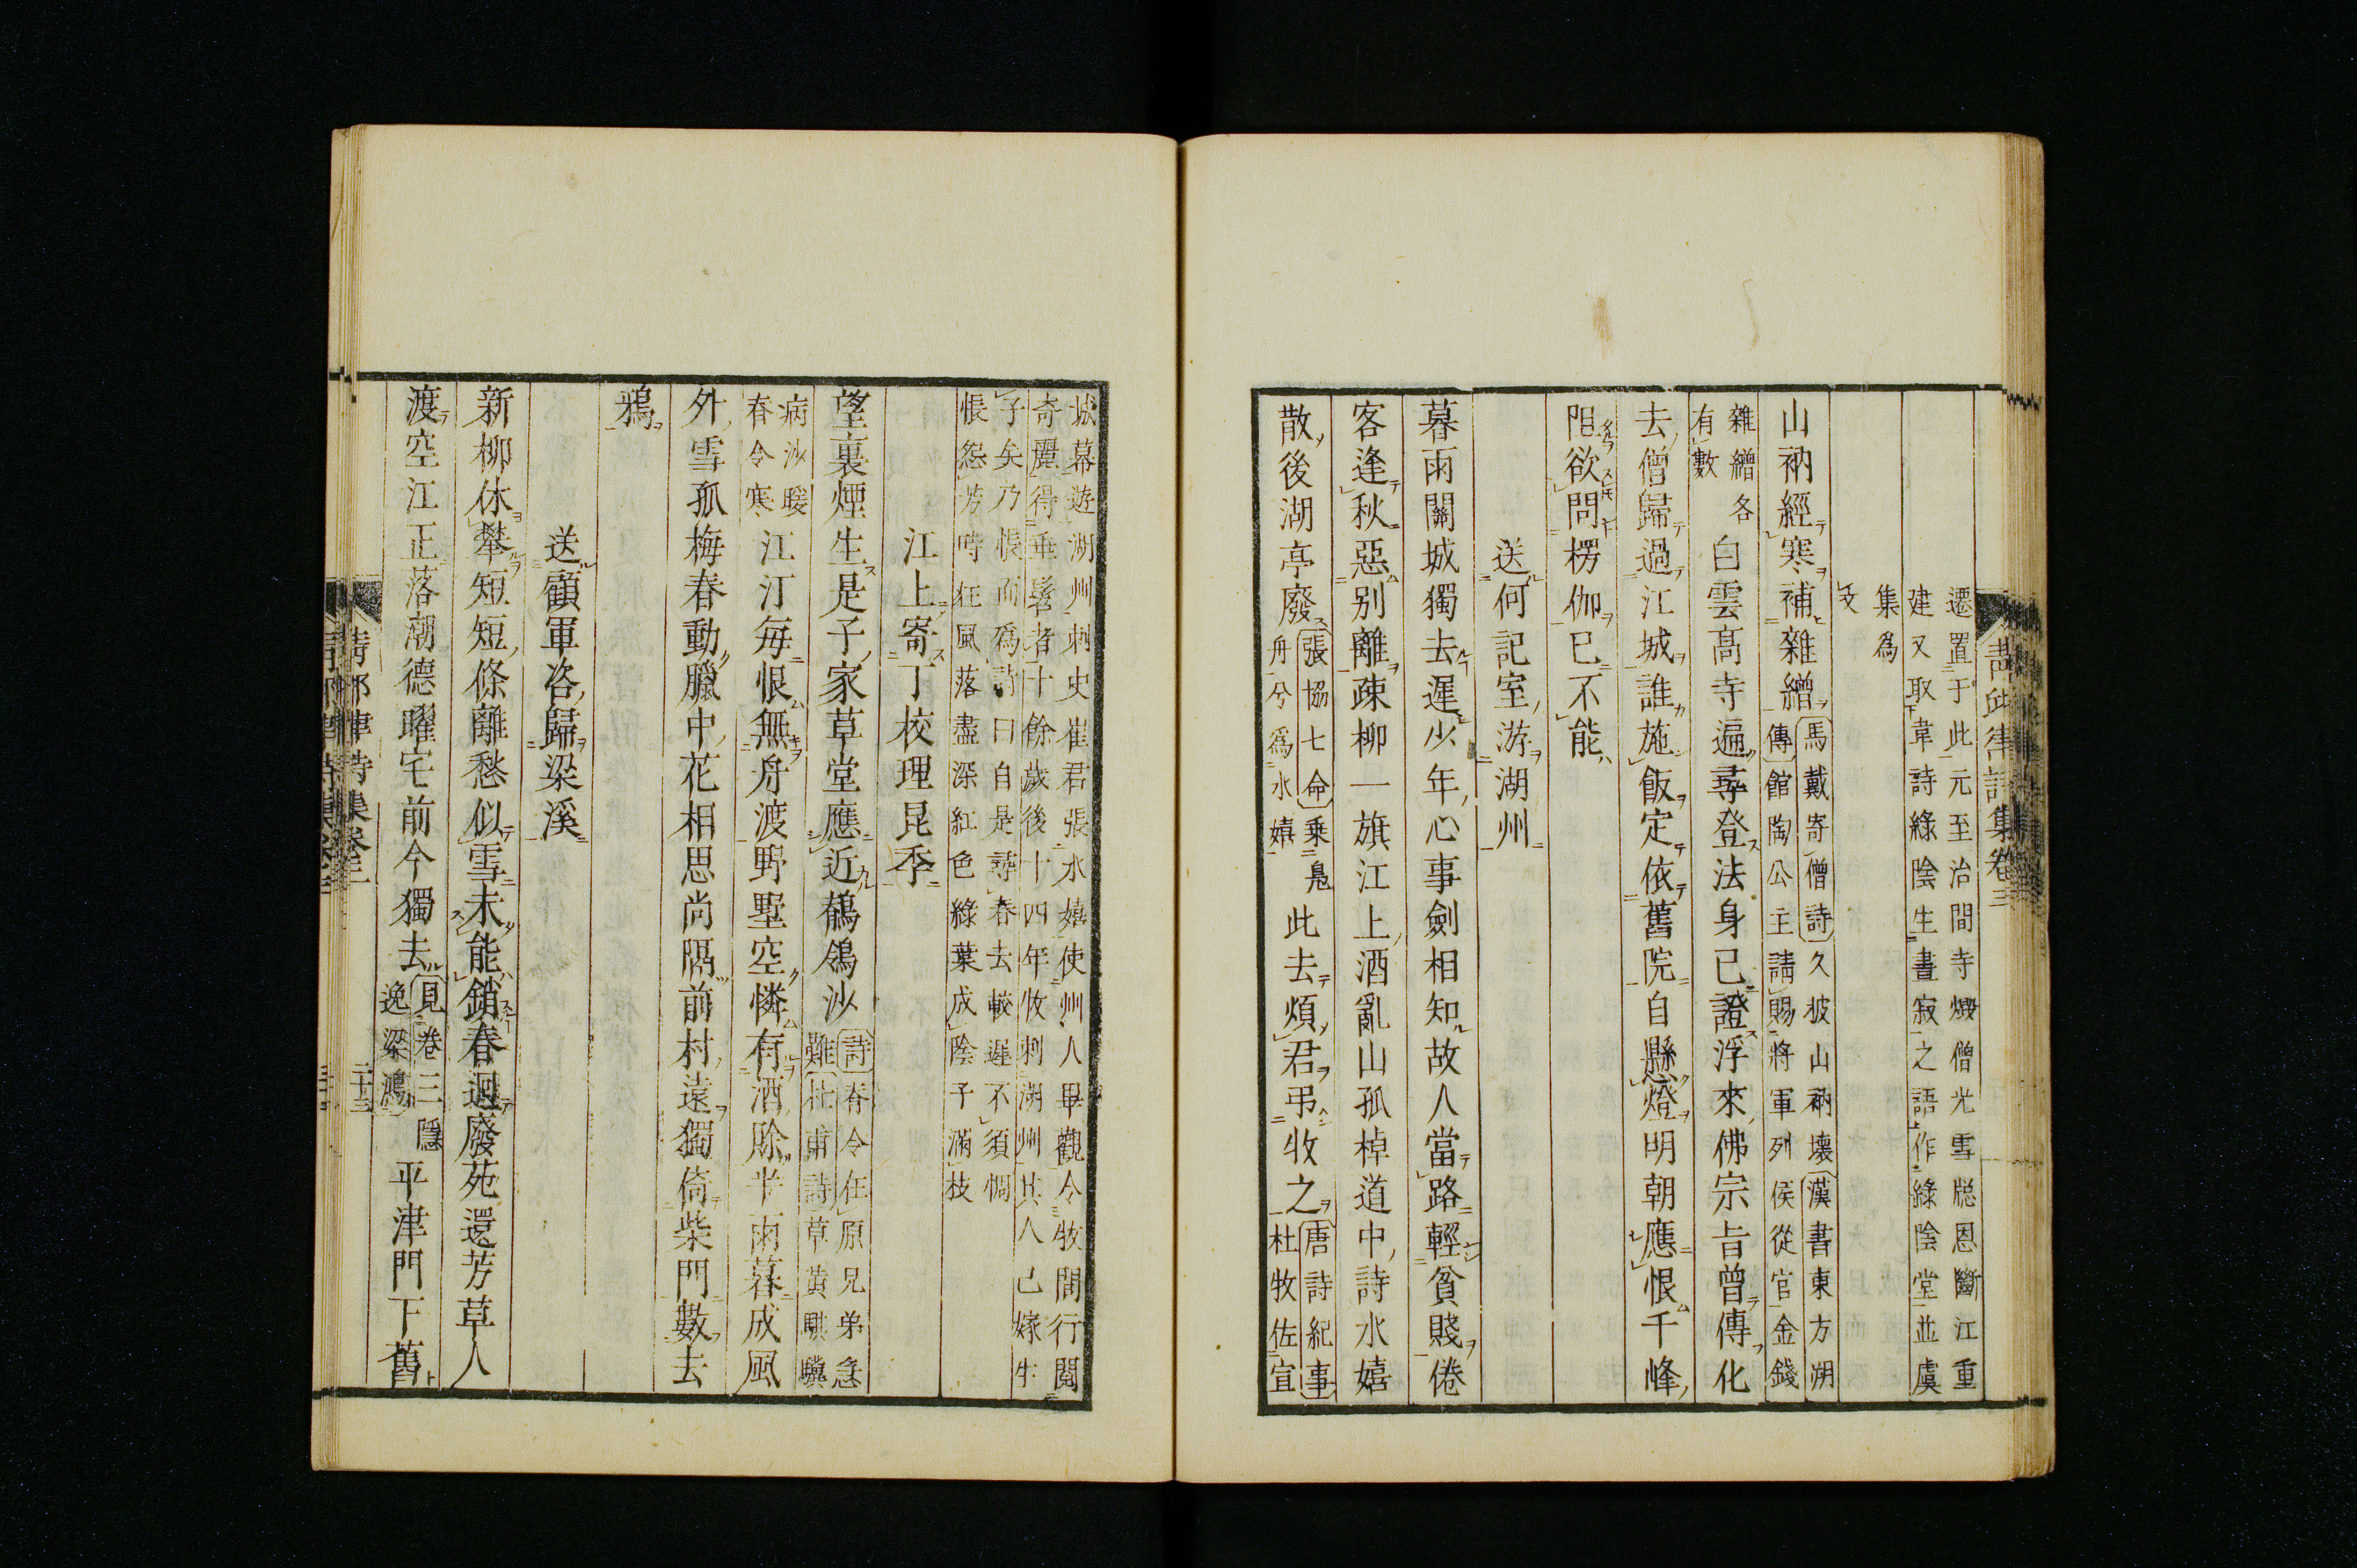 遷置于此元至治間寺燬僧光雪牕恩斷江重
建又取韋詩綠陰生晝寂之語作綠陰堂並虞
集爲
文
山衲經寒補雜繒
馬戴寄僧詩久披山衲壞漢書東方朔
傳館陶公主請賜將軍列侯從官金錢
雜繒各
有數
白雲高寺遍尋登法身已證浮來佛宗旨曾傳化
去僧歸過江城誰施飯定依舊院自懸燈明朝應恨千峰
阻欲問楞伽已不能
送何記室游湖州
暮雨關城獨去遲少年心事劍相知故人當路輕貧賤倦
客逢秋惡別離疎柳一旗江上酒亂山孤棹道中詩水嬉
散後湖亭廢
張協七命乘鳧
舟兮爲水嬉
此去煩君弔牧之
唐詩紀事
杜牧佐宣
城幕遊湖州刺史崔君張水嬉使州人畢觀令牧閒行閱
奇麗得垂髫者十餘歲後十四年牧刺湖州其人已嫁生
子矣乃悵而爲詩曰自是尋春去較遲不須惆
悵怨芳時狂風落盡深紅色綠葉成陰子滿枝
江上寄丁校理昆季
望裏煙生是子家草堂應近鶺鴒沙
詩脊令在原兄弟急
難杜甫詩草黃騏驥
病沙暖
春令寒
江汀每恨無舟渡野墅空憐有酒賒半雨暮成風
外雪孤梅春動臘中花相思尚隔前村遠獨倚柴門數去
鴉
送顧軍咨歸梁溪
新柳休攀短短條離愁似雪未能銷春迴廢苑還芳草人
渡空江正落潮德曜宅前今獨去
見卷三隱
逸梁鴻
平津門下舊
青邱律詩集卷三
二十三